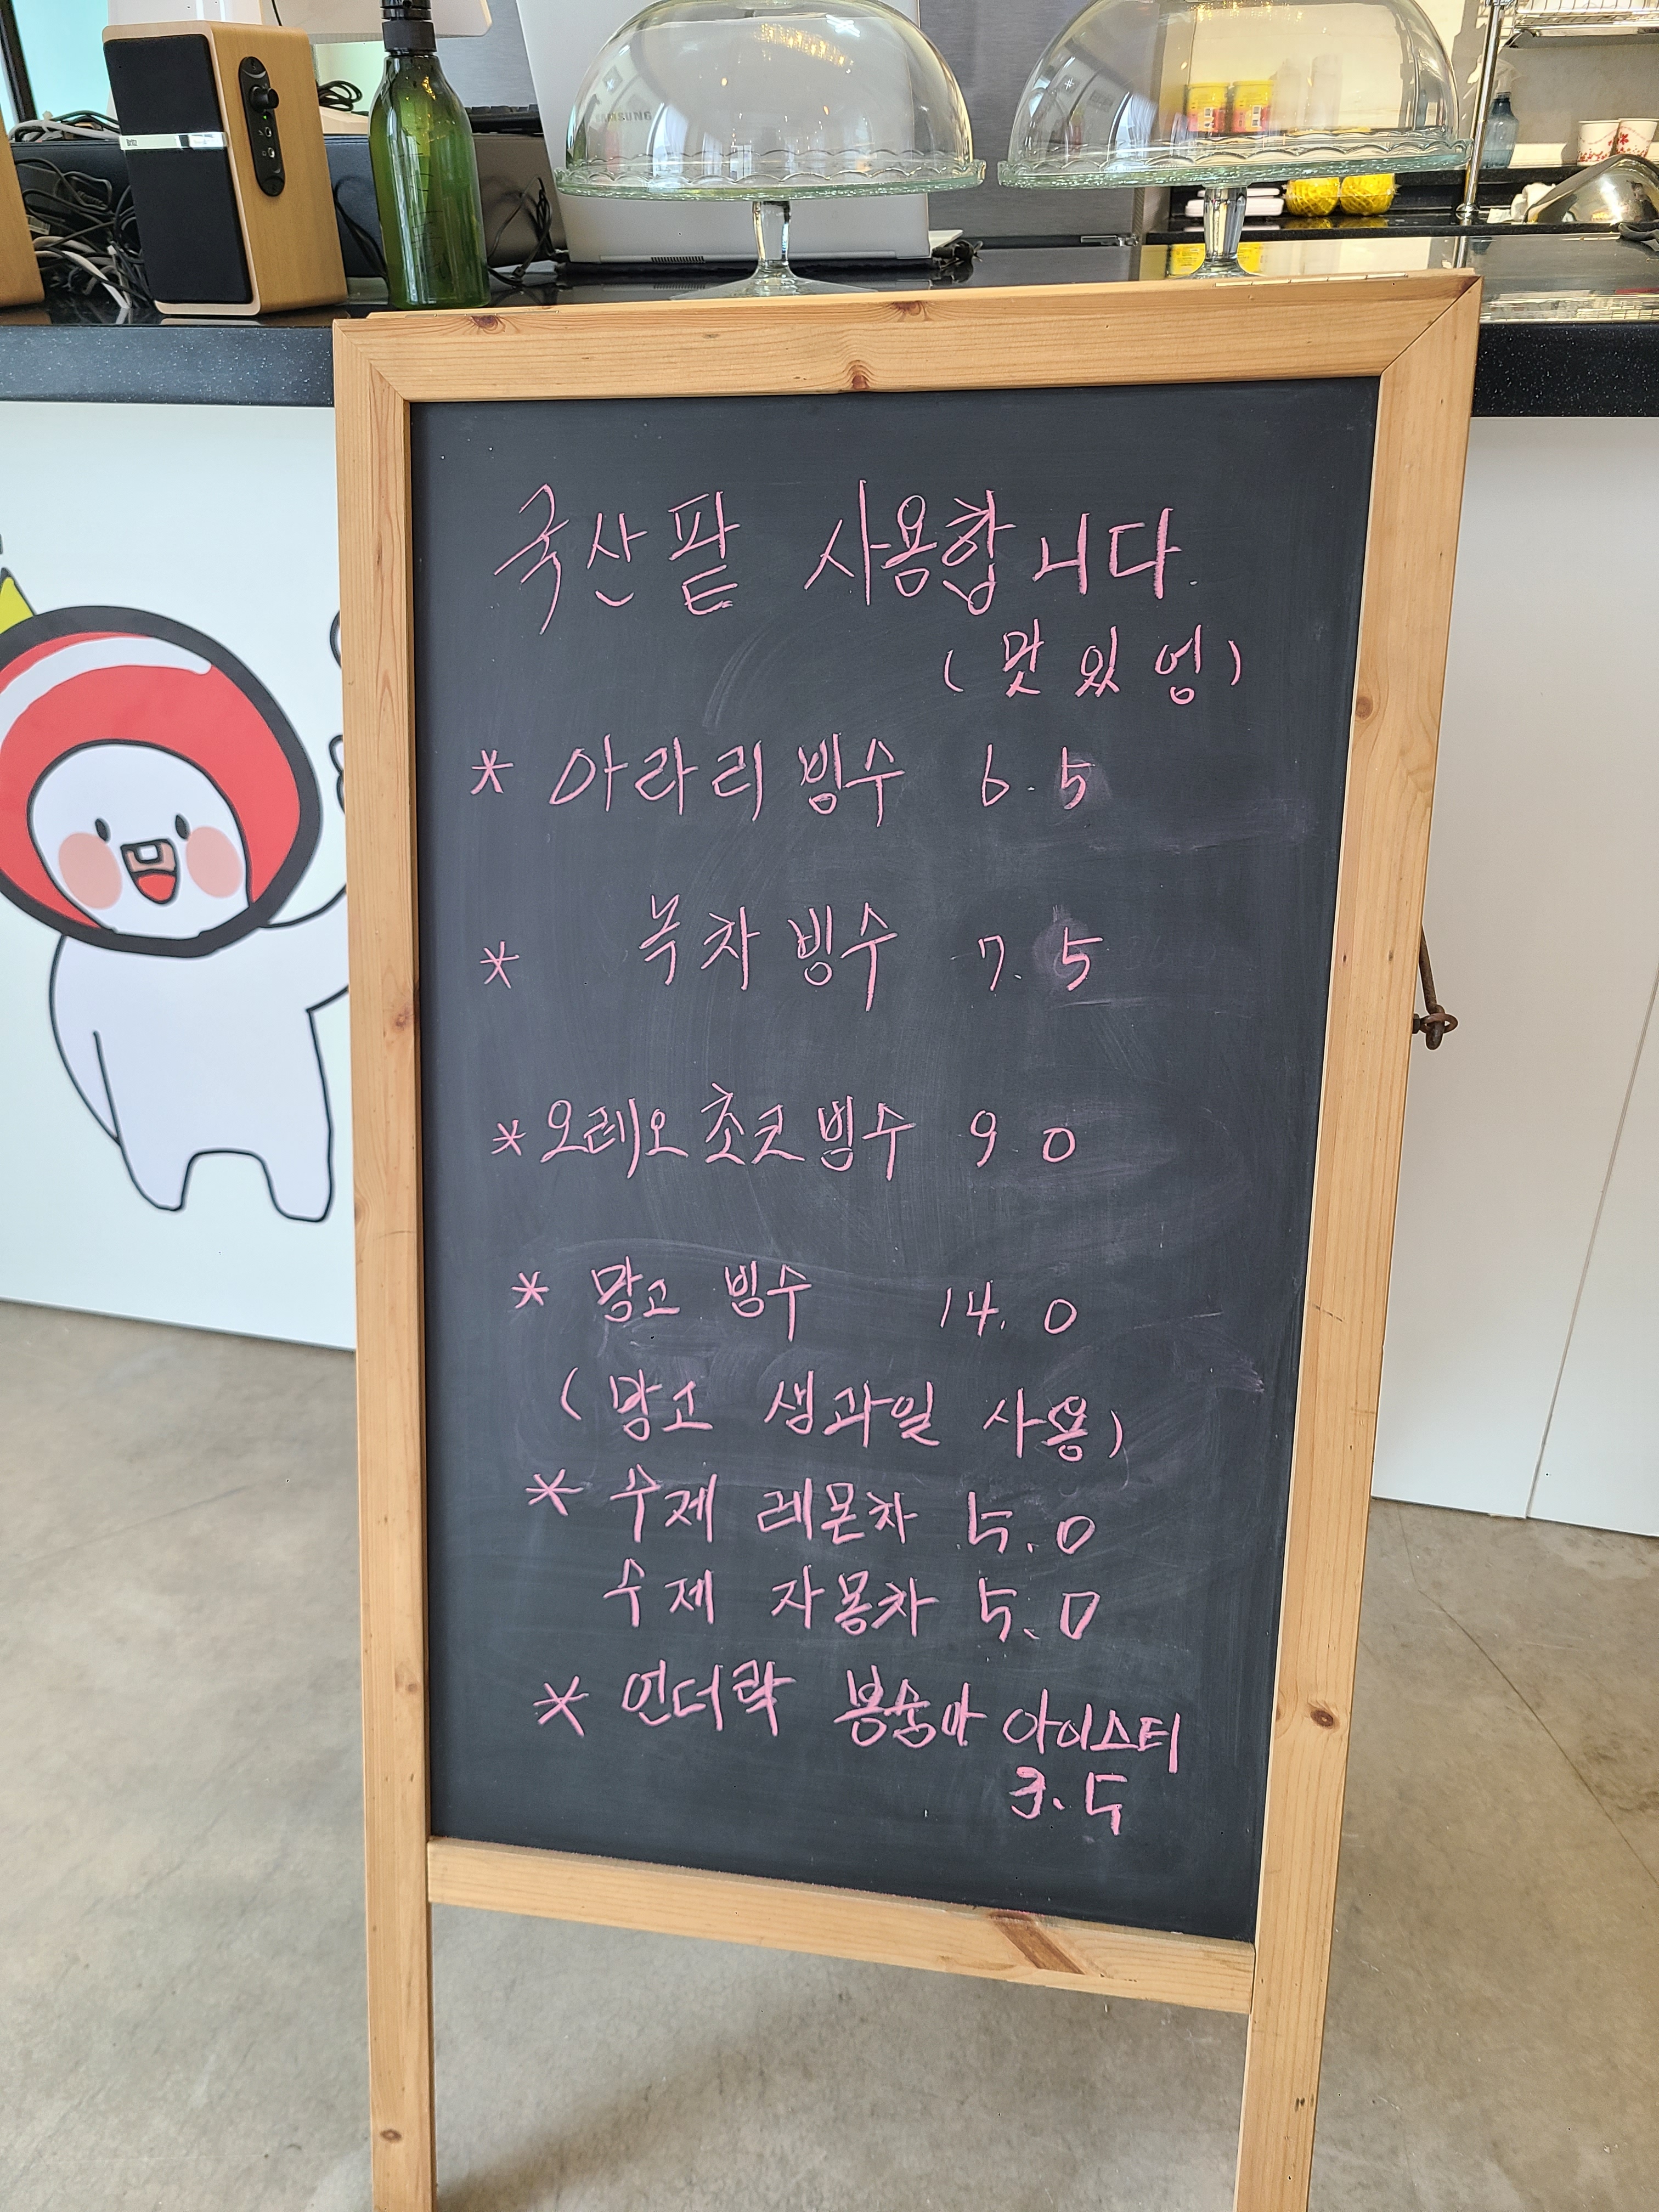 SAMSUNG
Britz
국산팥 사용합니다.
(맛있엉)
* 아라리빙수 6.5
* 녹차빙수 7.5
* 오레오초코빙수 9 0
* 망고 빙수 14.0
(망고 생과일 사용)
* 수제 레몬차 5.0
수제 자몽차 5.0
* 언더락 봉숭아 아이스티
3.5